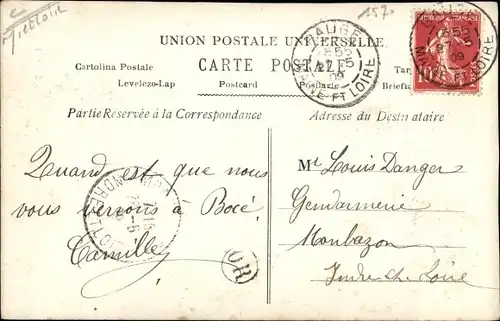 157.
UNION POSTALE UNIVERSELLE
Cartolina Postale
CARTE POSTALE
Levelezo-Lap
Postcard
Postkarte
Partie Réservée à la Correspondance
Adresse du Destinataire
BAUGÉ
MAINE ET LOIRE
09
BAUGÉ
MAINE ET LOIRE
09
10c
Quand est que nous
vous verrons à Bocé.
Camille
OR
Mr Louis Danger
Gendarmerie
Monbazon
Indre et Loire